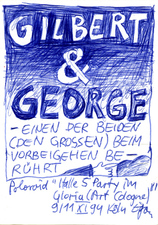 GILBERT
&
GEORGE
- EINEN DER BEIDEN
(DEN GROSSEN) BEIM
VORBEIGEHEN BE-
RÜHRT
Polaroid "Halle 5 Party im
Gloria (Art Cologne)"
9/11 XI 94 Köln